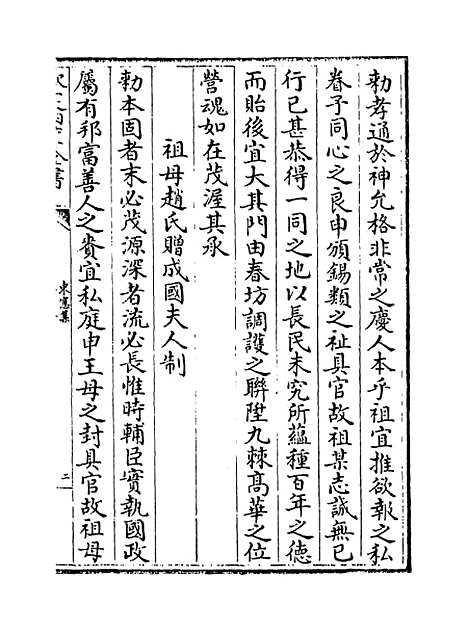 勅孝通於神允格非常之慶人本乎祖宜推欲報之私
眷予同心之良申頒錫類之祉具官故祖某志誠無已
行已甚恭得一同之地以長民未究所蘊種百年之德
而貽後宜大其門由春坊調護之聯陞九棘髙華之位
營魂如在茂渥其承
祖母趙氏贈成國夫人制
勅本固者末必茂源深者流必長惟時輔臣實執國政
屬有邦富善人之賚宜私庭申王母之封具官故祖母
東窻集
二